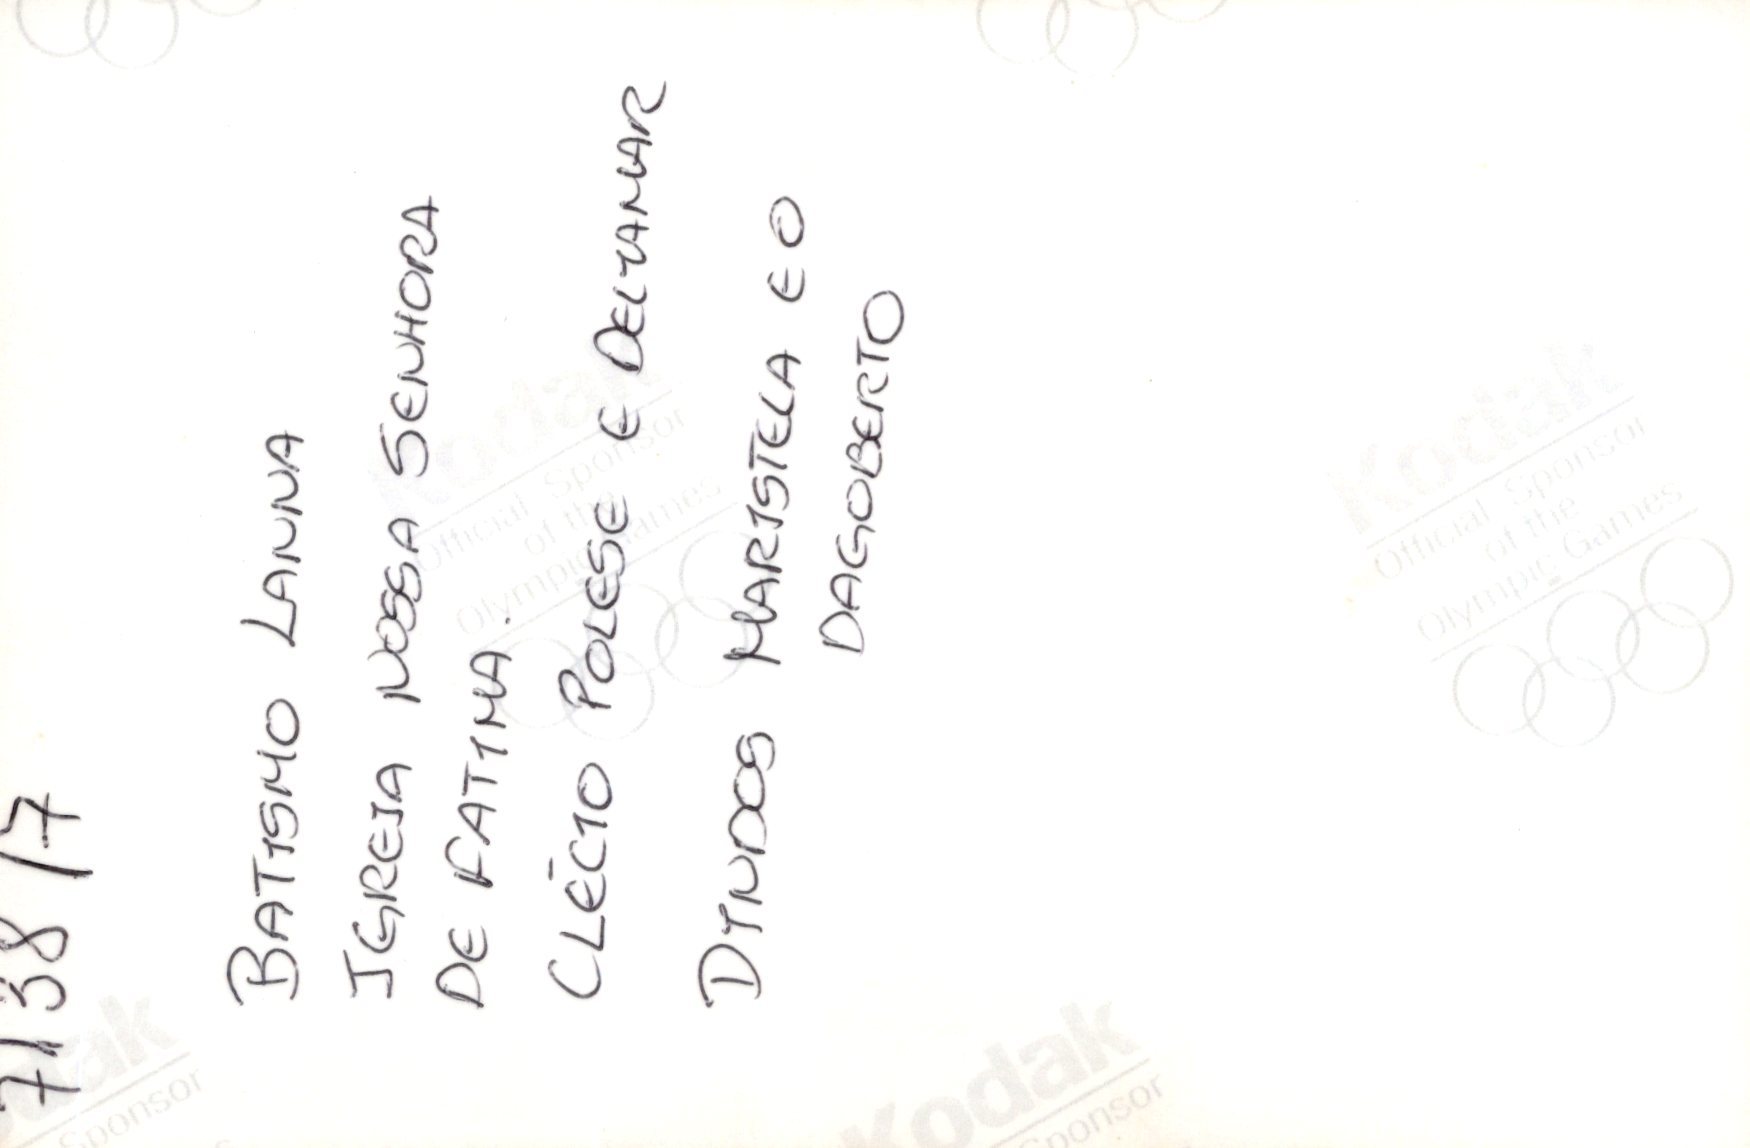 7138/7
BATISMO LANNA
IGREJA NOSSA SENHORA
DE FATIMA.
CLÉCIO POLESE E DELTAMAR
DINDOS MARISTELA E O
DAGOBERTO
Kodak
Official Sponsor
of the
Olympic Games
Kodak
Official Sponsor
of the
Olympic Games
Kodak
Sponsor
Sponsor